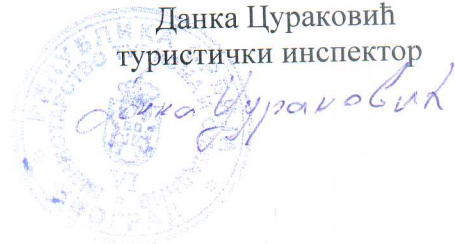 Данка Цураковић
туристички инспектор
Данка Цураковић
РЕПУБЛИКА
VI
БЕОГРАД